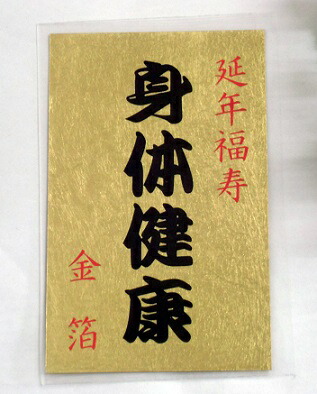 延年福寿
身体健康
金箔